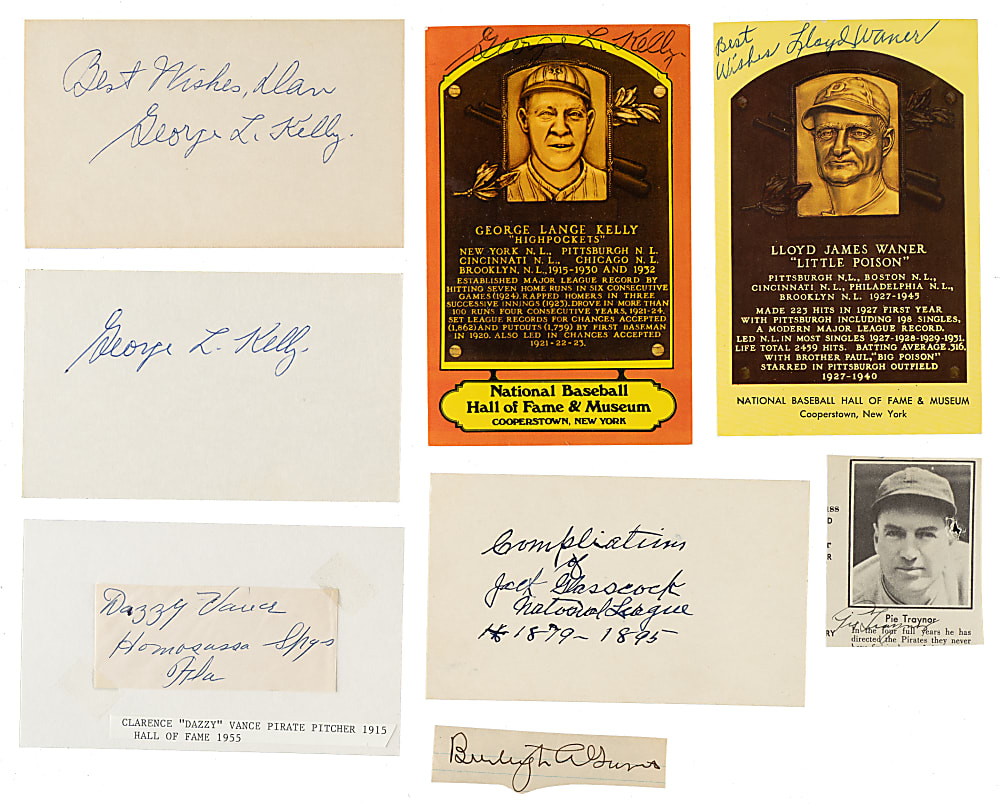 Best Wishes, Dan
George L. Kelly.
George L. Kelly.
Dazzy Vance
Homosassa Spgs
Fla
CLARENCE "DAZZY" VANCE PIRATE PITCHER 1915
HALL OF FAME 1955
George L. Kelly.
GEORGE LANGE KELLY
"HIGHPOCKETS"
NEW YORK N.L., PITTSBURGH N.L.
CINCINNATI N.L., CHICAGO N.L.
BROOKLYN, N.L., 1915-1930 AND 1932
ESTABLISHED MAJOR LEAGUE RECORD BY
HITTING SEVEN HOME RUNS IN SIX CONSECUTIVE
GAMES (1924). RAPPED HOMERS IN THREE
SUCCESSIVE INNINGS (1923). DROVE IN MORE THAN
100 RUNS FOUR CONSECUTIVE YEARS, 1921-24.
SET LEAGUE RECORDS FOR CHANCES ACCEPTED
(1,862) AND PUTOUTS (1,759) BY FIRST BASEMAN
IN 1920. ALSO LED IN CHANCES ACCEPTED
1921-22-23.
National Baseball
Hall of Fame & Museum
COOPERSTOWN, NEW YORK
Best
Wishes Lloyd Waner
P
LLOYD JAMES WANER
"LITTLE POISON"
PITTSBURGH N.L., BOSTON N.L.,
CINCINNATI N.L., PHILADELPHIA N.L.,
BROOKLYN N.L. 1927-1945
MADE 223 HITS IN 1927 FIRST YEAR
WITH PITTSBURGH INCLUDING 198 SINGLES,
A MODERN MAJOR LEAGUE RECORD.
LED N.L. IN MOST SINGLES 1927-1928-1929-1931.
LIFE TOTAL 2459 HITS. BATTING AVERAGE .316.
WITH BROTHER PAUL, "BIG POISON"
STARRED IN PITTSBURGH OUTFIELD
1927-1940
NATIONAL BASEBALL HALL OF FAME & MUSEUM
Cooperstown, New York
Compliations
of
Jack Glasscock
National League
1879-1895
Burleigh A Grimes
Pie Traynor
Pie Traynor
In the four full years he has
directed the Pirates they never